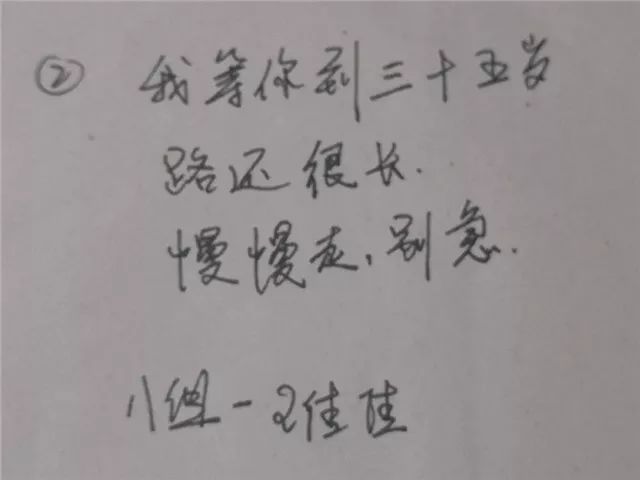 ② 我等你到三十五岁
路还很长.
慢慢走,别急.
组一